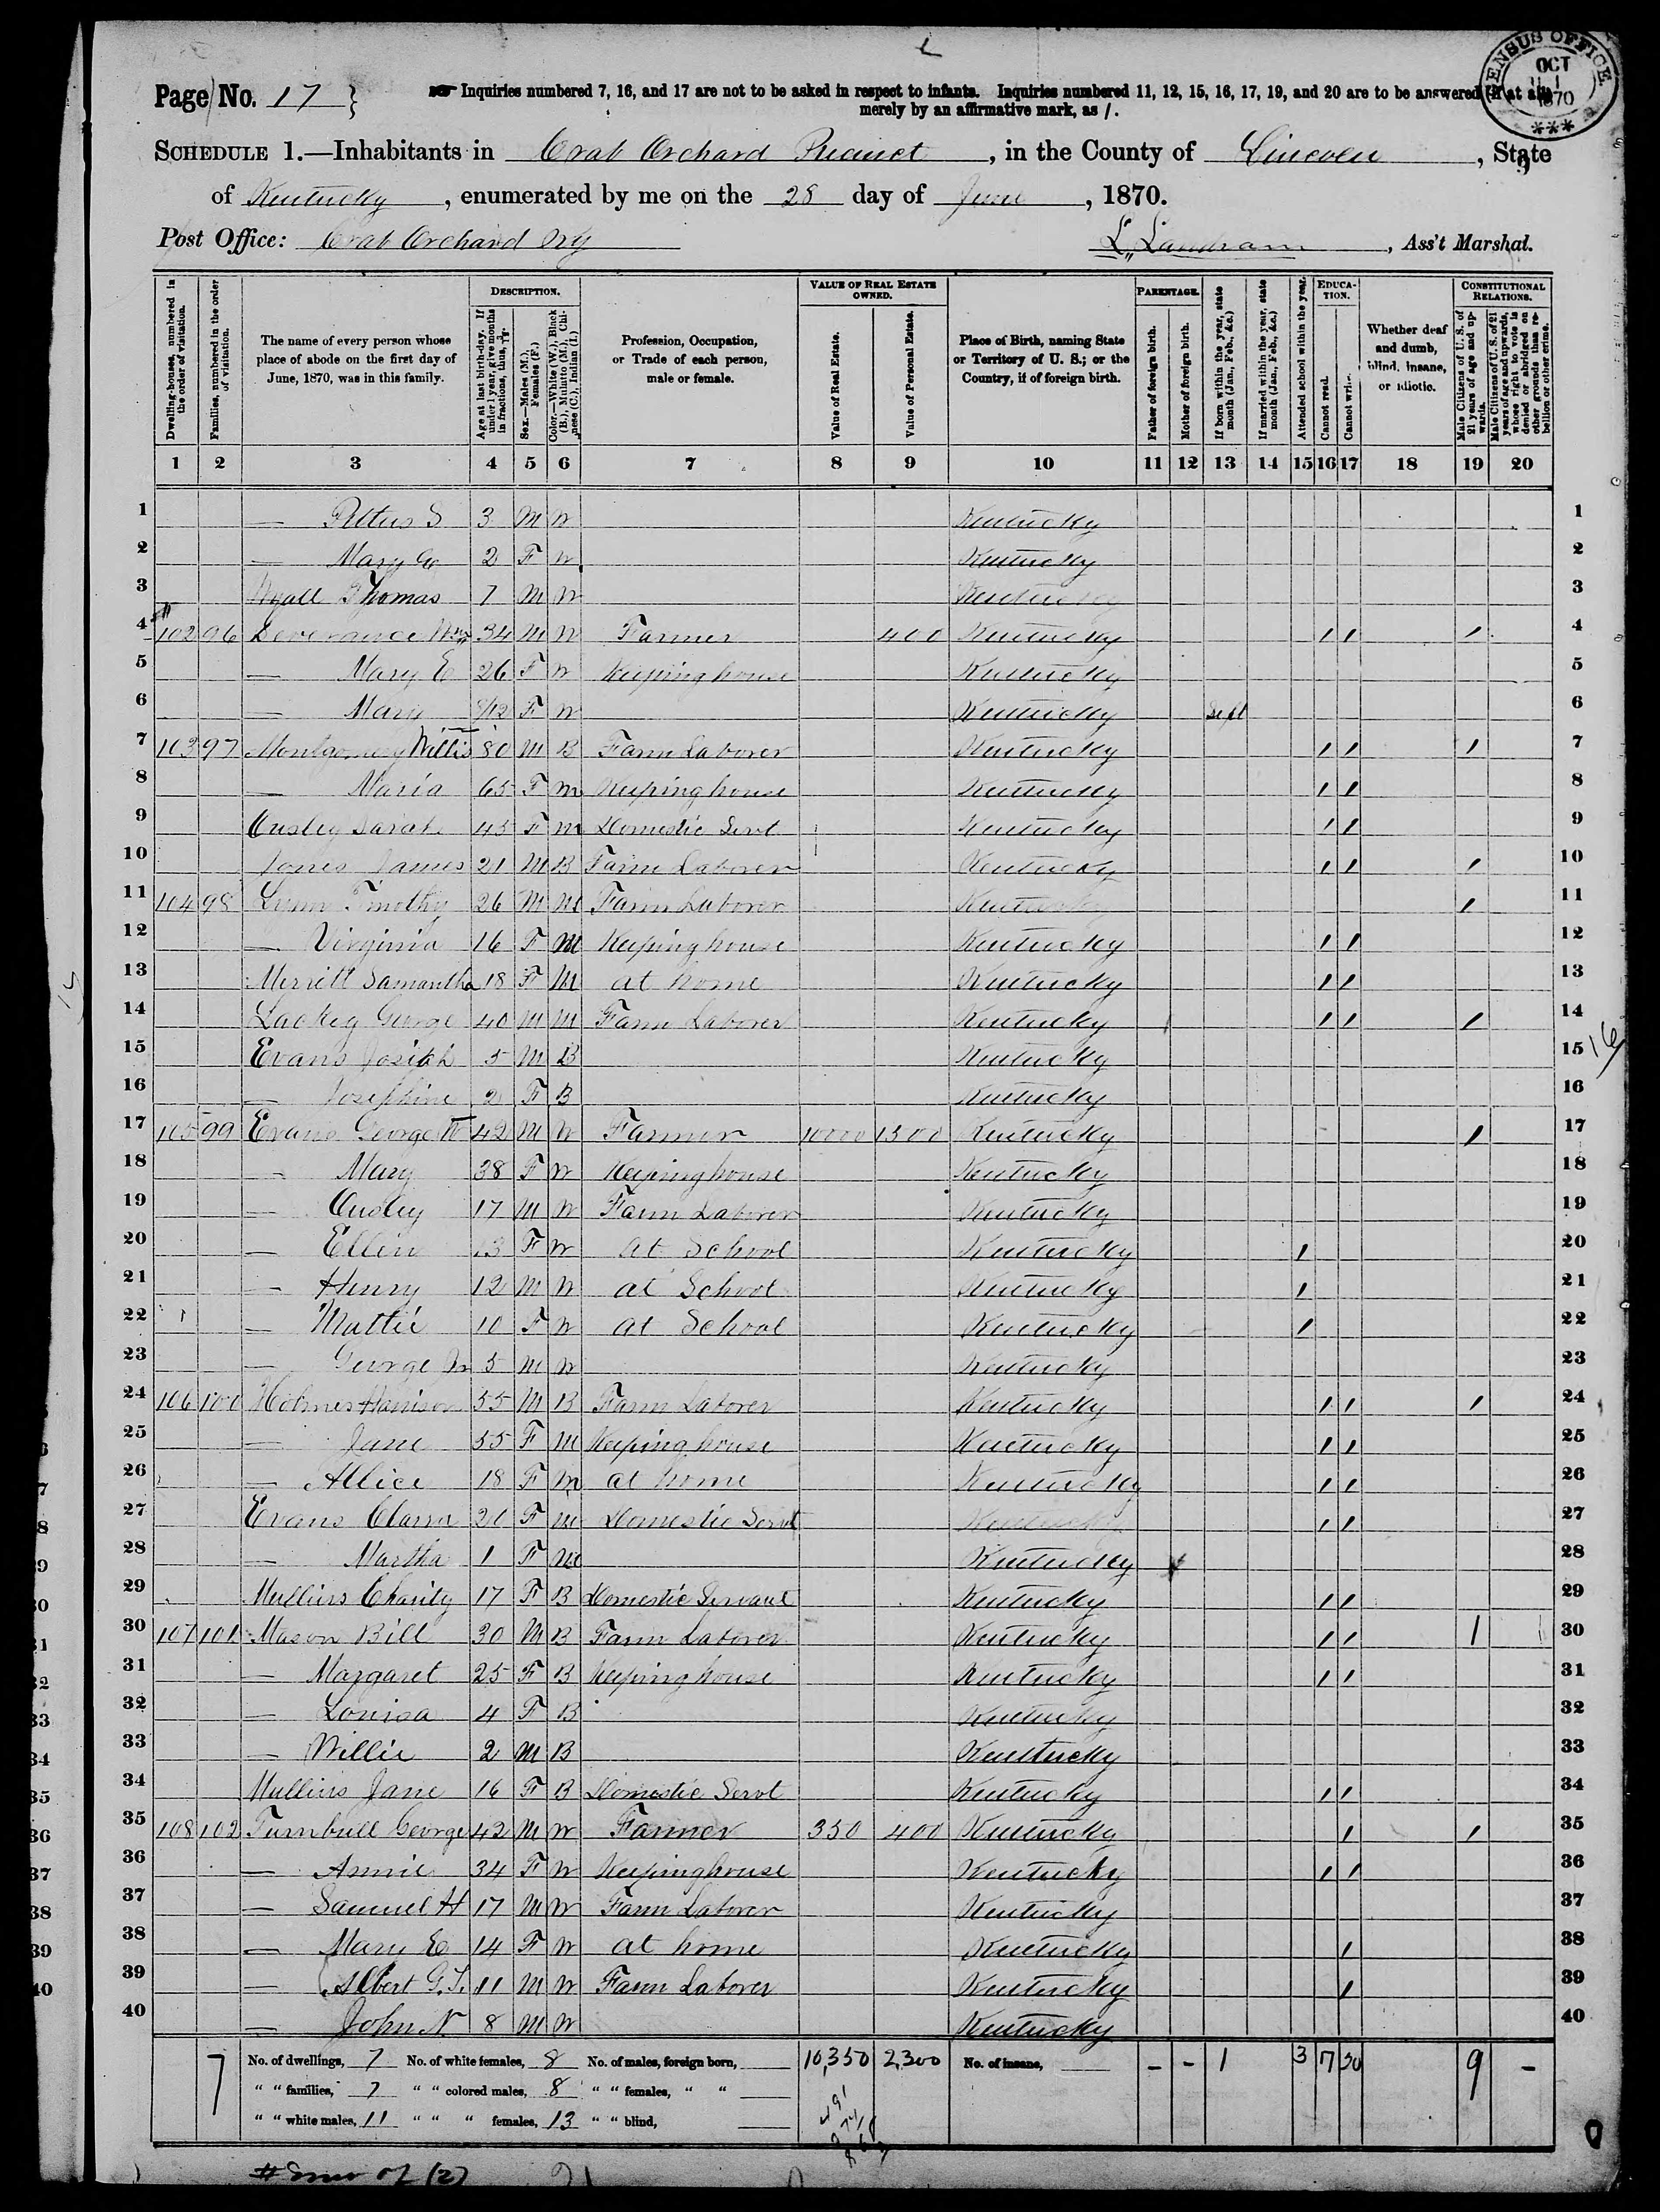 Page No. 17
Inquiries numbered 7, 16, and 17 are not to be asked in respect to infants. Inquiries numbered 11, 12, 15, 16, 17, 19, and 20 are to be answered (if at all)
merely by an affirmative mark, as /.
CENSUS OFFICE OCT 1870 ***
SCHEDULE 1.—Inhabitants in Crab Orchard Precinct, in the County of Lincoln, State
of Kentucky, enumerated by me on the 28 day of June, 1870.
Post Office: Crab Orchard Ky
L. Landram, Ass't Marshal.
Dwelling-houses, numbered in the order of visitation.
Families, numbered in the order of visitation.
The name of every person whose place of abode on the first day of June, 1870, was in this family.
DESCRIPTION.
Age at last birth-day. If under 1 year, give months in fractions, thus,
Sex.—Males (M.), Females (F.)
Color.—White (W.), Black (B.), Mulatto (M.), Chinese (C.), Indian (I.)
Profession, Occupation, or Trade of each person, male or female.
VALUE OF REAL ESTATE OWNED.
Value of Real Estate.
Value of Personal Estate.
Place of Birth, naming State or Territory of U. S.; or the Country, if of foreign birth.
PARENTAGE.
Father of foreign birth.
Mother of foreign birth.
If born within the year, state month (Jan., Feb., &c.)
If married within the year, state month (Jan., Feb., &c.)
Attended school within the year.
EDUCATION.
Cannot read.
Cannot write.
Whether deaf and dumb, blind, insane, or idiotic.
CONSTITUTIONAL RELATIONS.
Male Citizens of U. S. of 21 years of age and upwards.
Male Citizens of U. S. of 21 years of age and upwards, whose right to vote is denied or abridged on other grounds than rebellion or other crime.
1 2 3 4 5 6 7 8 9 10 11 12 13 14 15 16 17 18 19 20
1 — S 3 M W Kentucky 1
2 — Mary 2 F W Kentucky 2
3 Thomas 7 M W Kentucky 3
4 102 96 Severance Wm 34 M W Farmer 400 Kentucky / / / 4
5 — Mary E 26 F W Keeping house Kentucky 5
6 — Mary 8/12 F W Kentucky Sept 6
7 103 97 Montgomery Willis 80 M B Farm Laborer Kentucky / / / 7
8 — Maria 65 F M Keeping house Kentucky / / 8
9 Ousley Sarah 45 F M Domestic Servt Kentucky / / 9
10 Jones James 21 M B Farm Laborer Kentucky / / / 10
11 104 98 Timothy 26 M M Farm Laborer Kentucky / 11
12 — Virginia 16 F M Keeping house Kentucky / / 12
13 Merritt Samantha 18 F M at home Kentucky / / 13
14 Lackey George 40 M M Farm Laborer Kentucky / / / 14
15 Evans Joseph 5 M B Kentucky 15
16 — Josephine 2 F B Kentucky 16
17 105 99 Evans George W 42 M W Farmer 10000 1500 Kentucky / 17
18 — Mary 38 F W Keeping house Kentucky 18
19 — Ousley 17 M W Farm Laborer Kentucky 19
20 — Ellen 13 F W at School Kentucky / 20
21 — Henry 12 M W at School Kentucky / 21
22 — Mattie 10 F W at School Kentucky / 22
23 — George 5 M W Kentucky 23
24 106 100 Holmes Harrison 55 M B Farm Laborer Kentucky / / / 24
25 — Jane 55 F M Keeping house Kentucky / / 25
26 — Allice 18 F M at home Kentucky / / 26
27 Evans Clarra 21 F M Domestic Servt Kentucky / / 27
28 — Martha 1 F M Kentucky 28
29 Mullins Charity 17 F B Domestic Servant Kentucky / / 29
30 107 101 Mason Bill 30 M B Farm Laborer Kentucky / / / 30
31 — Margaret 25 F B Keeping house Kentucky / / 31
32 — Louisa 4 F B Kentucky 32
33 — Willie 2 M B Kentucky 33
34 Mullins Jane 16 F B Domestic Servt Kentucky / / 34
35 108 102 Turnbull George 42 M W Farmer 350 400 Kentucky / / 35
36 — Annie 34 F W Keeping house Kentucky / / 36
37 — Samuel H 17 M W Farm Laborer Kentucky 37
38 — Mary E 14 F W at home Kentucky / 38
39 — Albert G. T. 11 M W Farm Laborer Kentucky / 39
40 — John N 8 M W Kentucky 40
7 No. of dwellings, 7 No. of white females, 8 No. of males, foreign born, 10,350 2,300 No. of insane, - - 1 3 17 20 9 -
" " families, 7 " " colored males, 8 " " females, " "
" " white males, 11 " " " females, 13 " " blind,
# Error of (2)